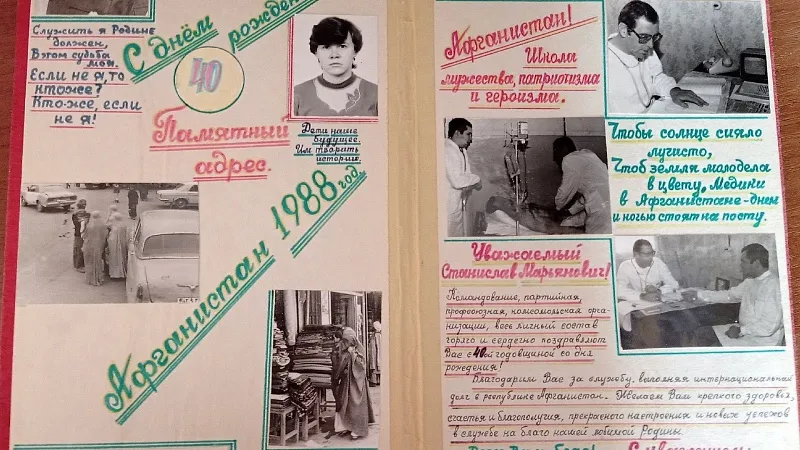 Служить я Родине
должен,
В этом судьба
моя.
Если не я, то
кто же?
Кто же, если
не я!
С днём рожден
40
Памятный
адрес.
Дети наше
будущее.
Им творить
историю.
Афганистан 1988 год.
Афганистан!
Школа
мужества, патриотизма
и героизма.
Чтобы солнце сияло
лучисто,
Чтоб земля молодела
в цвету. Медики
в Афганистане - днем
и ночью стоят на посту.
Уважаемый
Станислав Марьянович!
Командование, партийная,
профсоюзная, комсомольская орга-
низации, весь личный состав
горячо и сердечно поздравляют
Вас с 40ой годовщиной со дня
рождения!
Благодарим Вас за службу, выполняя интернациональный
долг в республике Афганистан. Желаем Вам крепкого здоровья,
счастья и благополучия, прекрасного настроения и новых успехов
в службе на благо нашей любимой Родины.